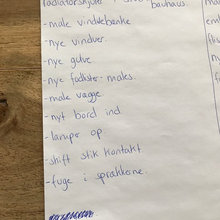 bauhaus.
- male vindueskarme
- nye vinduer.
- nye gulve
- nye makes.
- male vægge
- nyt bord ind
- lamper op
- skift stik kontakt
- fuge i sprækkerne.